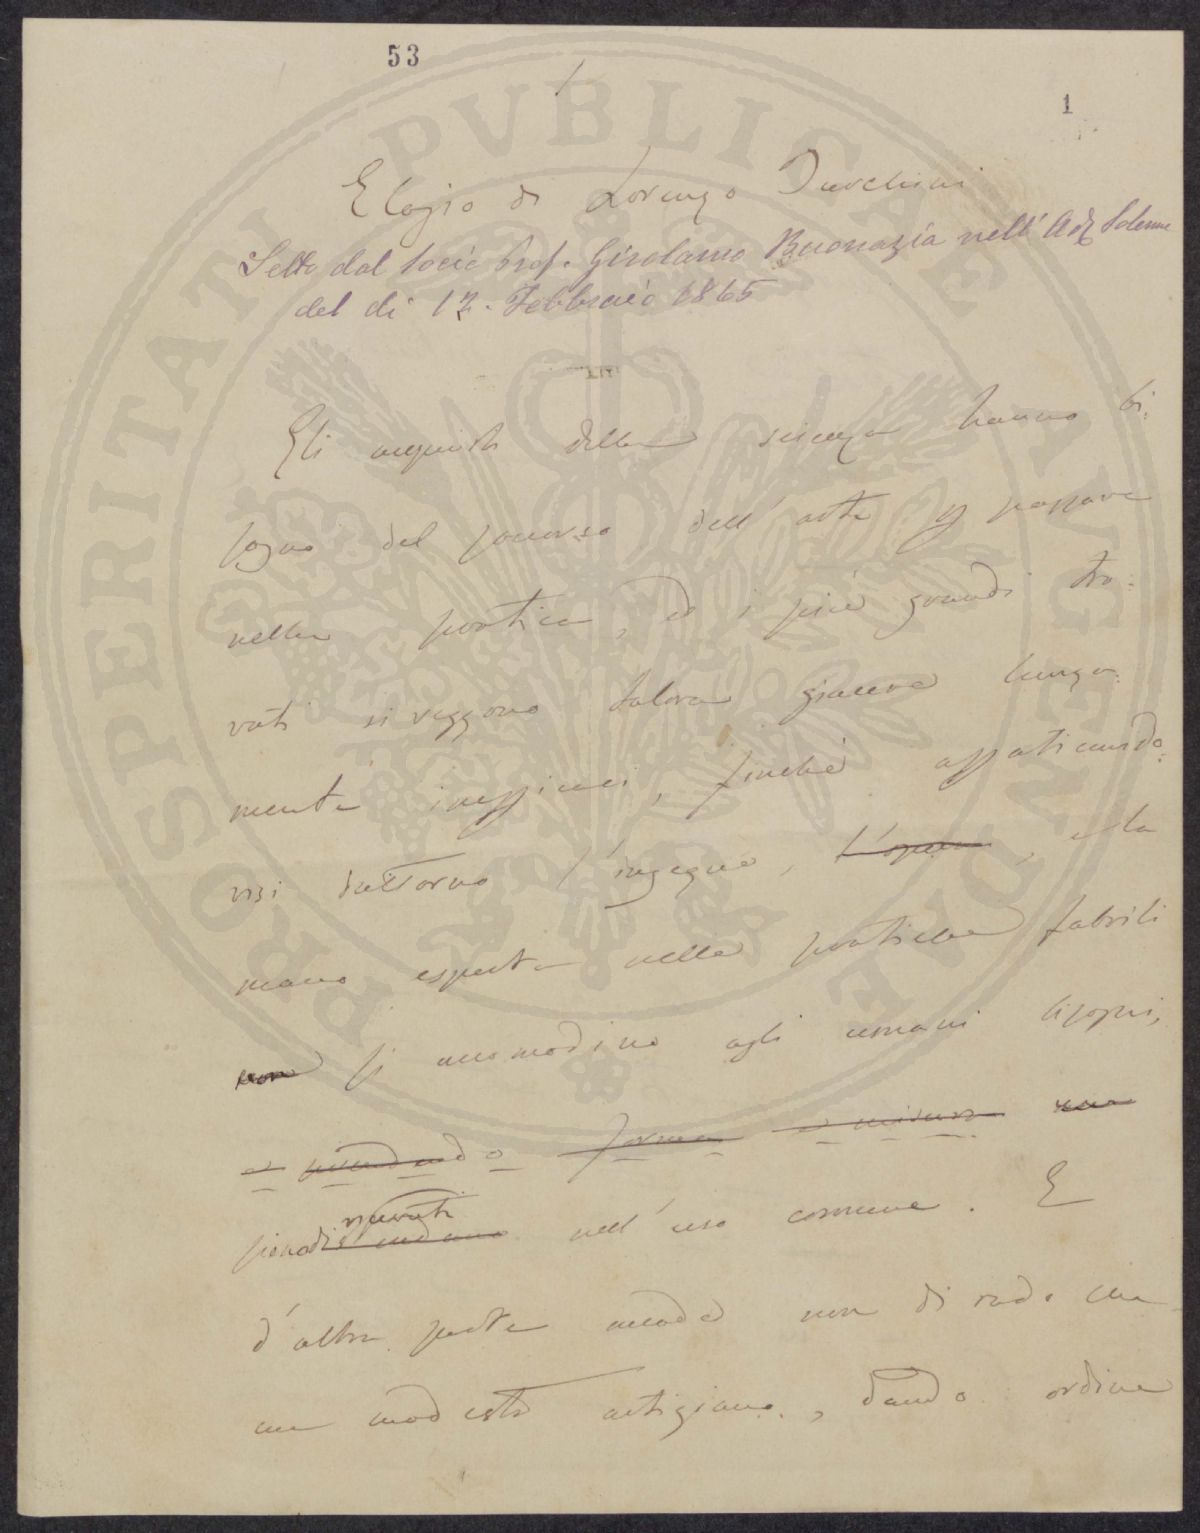 53
1
Elogio di Lorenzo Turchini
Letto dal Socio Prof. Girolamo Buonazia nell' Adz Solenne
del di 17. Febbraio 1865
Gli acquisti della scienza hanno bi:
sogno del soccorso dell' arte p passare
nella pratica, ed i più grandi tro:
vati si veggono talora giacere lunga:
mente inefficaci, finchè affaticando:
visi dattorno l'ingegno, l'opera, e la
mano esperta nelle pratiche fabrili
non si accomodino agli umani bisogni,
e prendendo forma e misura
ricevuti
nell' uso comune. E
d'altra parte accade non di rado che
un modesto artigiano, dando ordine
PROSPERITATI PVBLICAE AVGENDAE